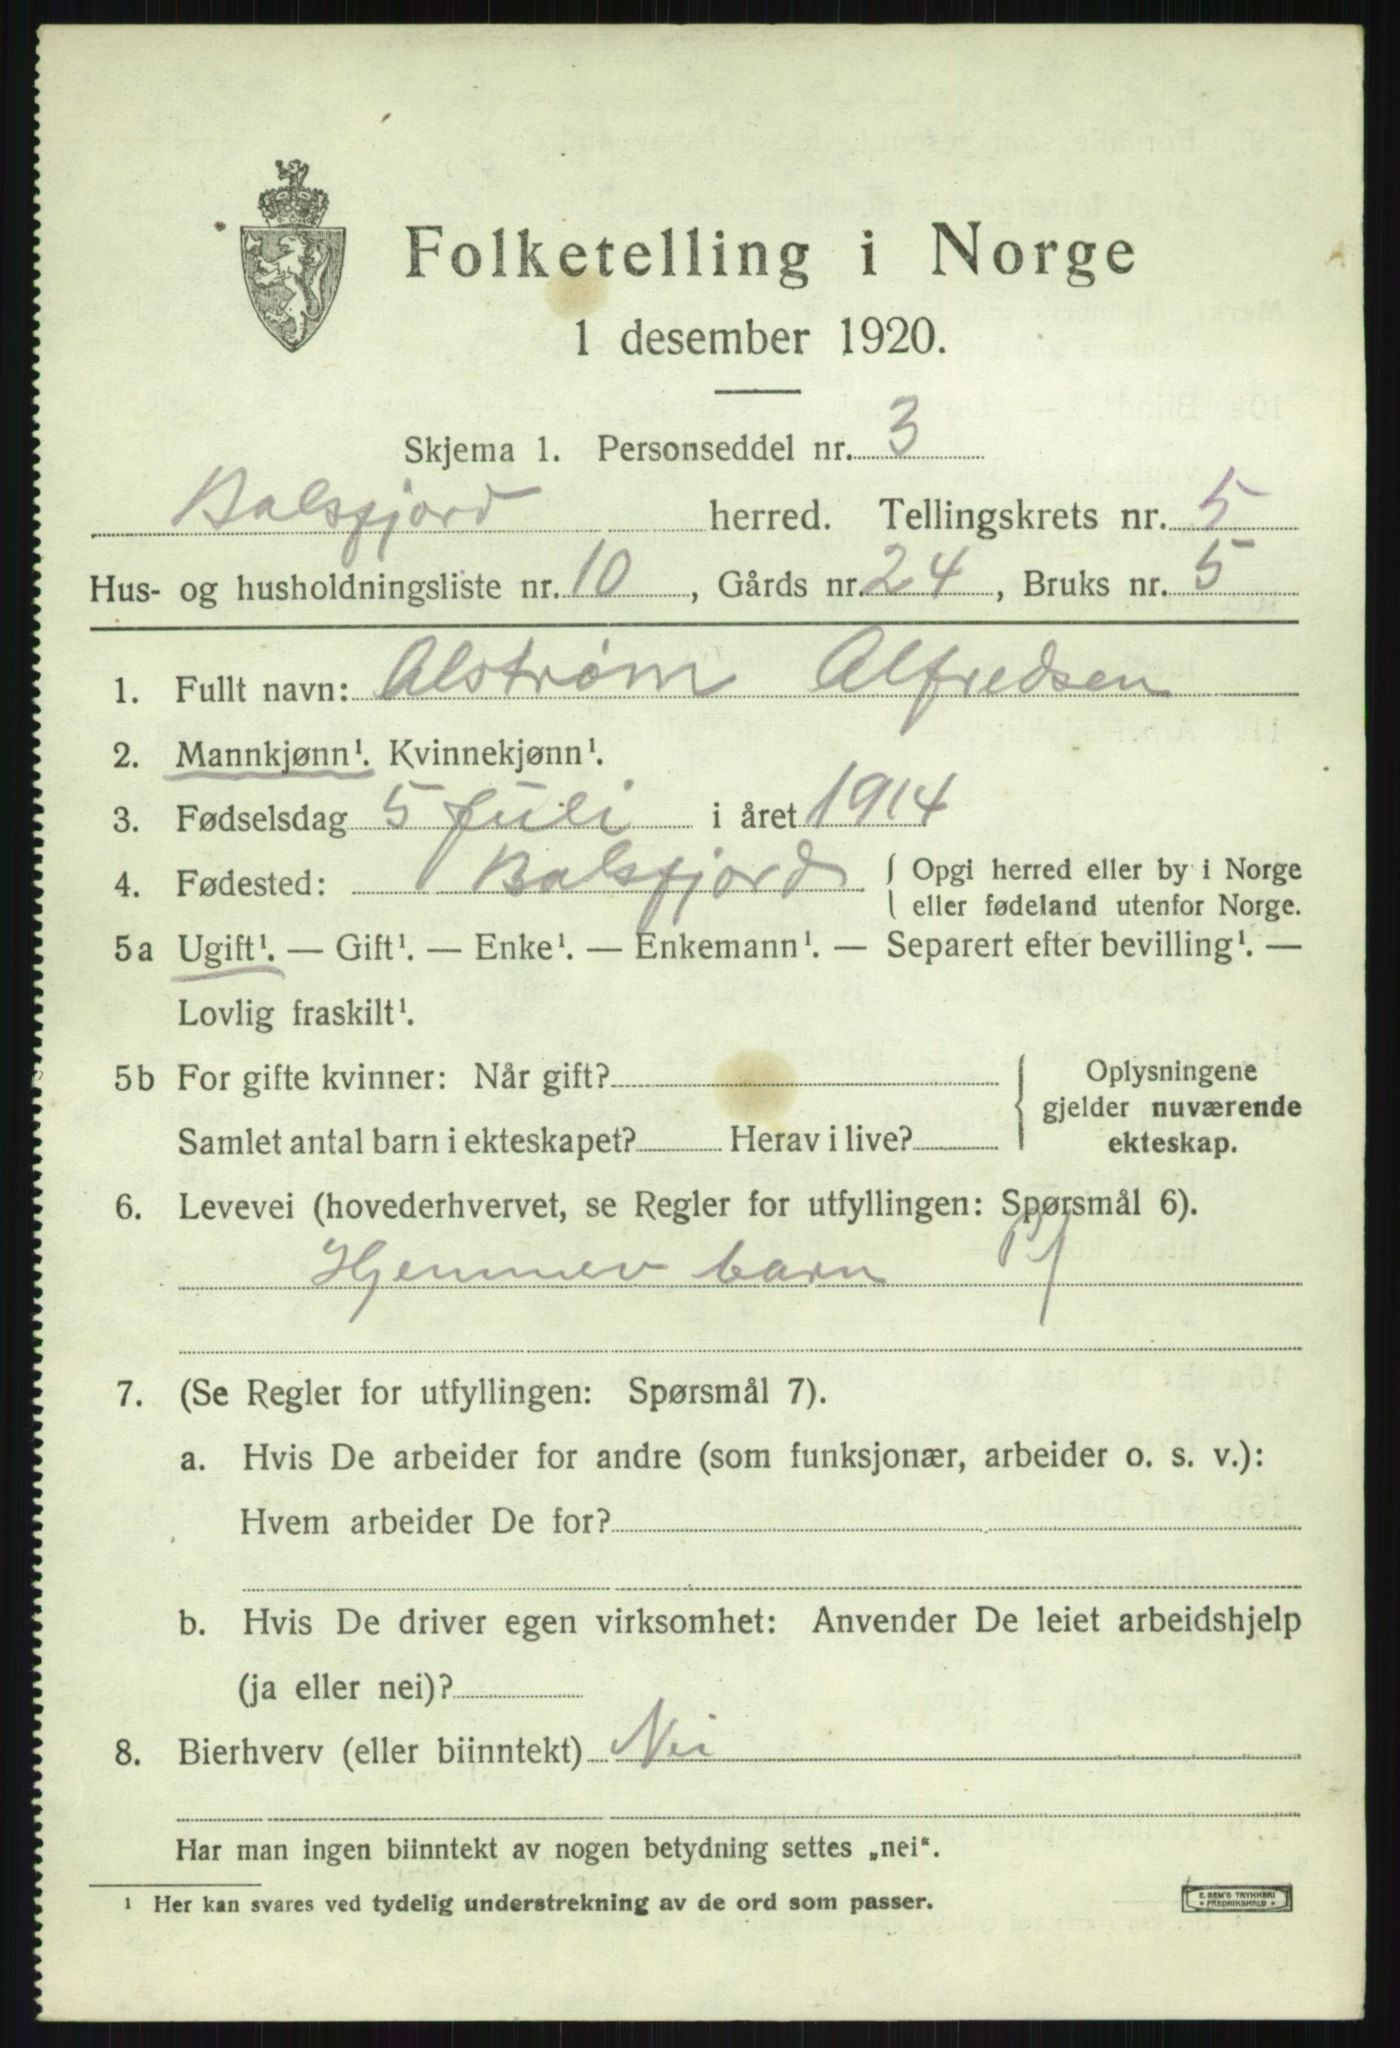 Folketelling i Norge
1 desember 1920.
Skjema 1. Personseddel nr. 3
Balsfjord herred. Tellingskrets nr. 5
Hus- og husholdningsliste nr. 10, Gårds nr. 24, Bruks nr. 5
1. Fullt navn: Alstrøm Alfredsen
2. Mannkjønn¹. Kvinnekjønn¹.
3. Fødselsdag 5 juli i året 1914
4. Fødested: Balsfjord { Opgi herred eller by i Norge
eller fødeland utenfor Norge.
5a Ugift¹. — Gift¹. — Enke¹. — Enkemann¹. — Separert efter bevilling¹. —
Lovlig fraskilt¹.
5b For gifte kvinner: Når gift?
Samlet antal barn i ekteskapet? Herav i live?
{ Oplysningene
gjelder nuværende
ekteskap.
6. Levevei (hovederhvervet, se Regler for utfyllingen: Spørsmål 6).
Hjemmev barn
7. (Se Regler for utfyllingen: Spørsmål 7).
a. Hvis De arbeider for andre (som funksjonær, arbeider o. s. v.):
Hvem arbeider De for?
b. Hvis De driver egen virksomhet: Anvender De leiet arbeidshjelp
(ja eller nei)?
8. Bierhverv (eller biinntekt) Nei
Har man ingen biinntekt av nogen betydning settes „nei“.
¹ Her kan svares ved tydelig understrekning av de ord som passer.
E. SEM'S TRYKKERI
FREDRIKSHALD